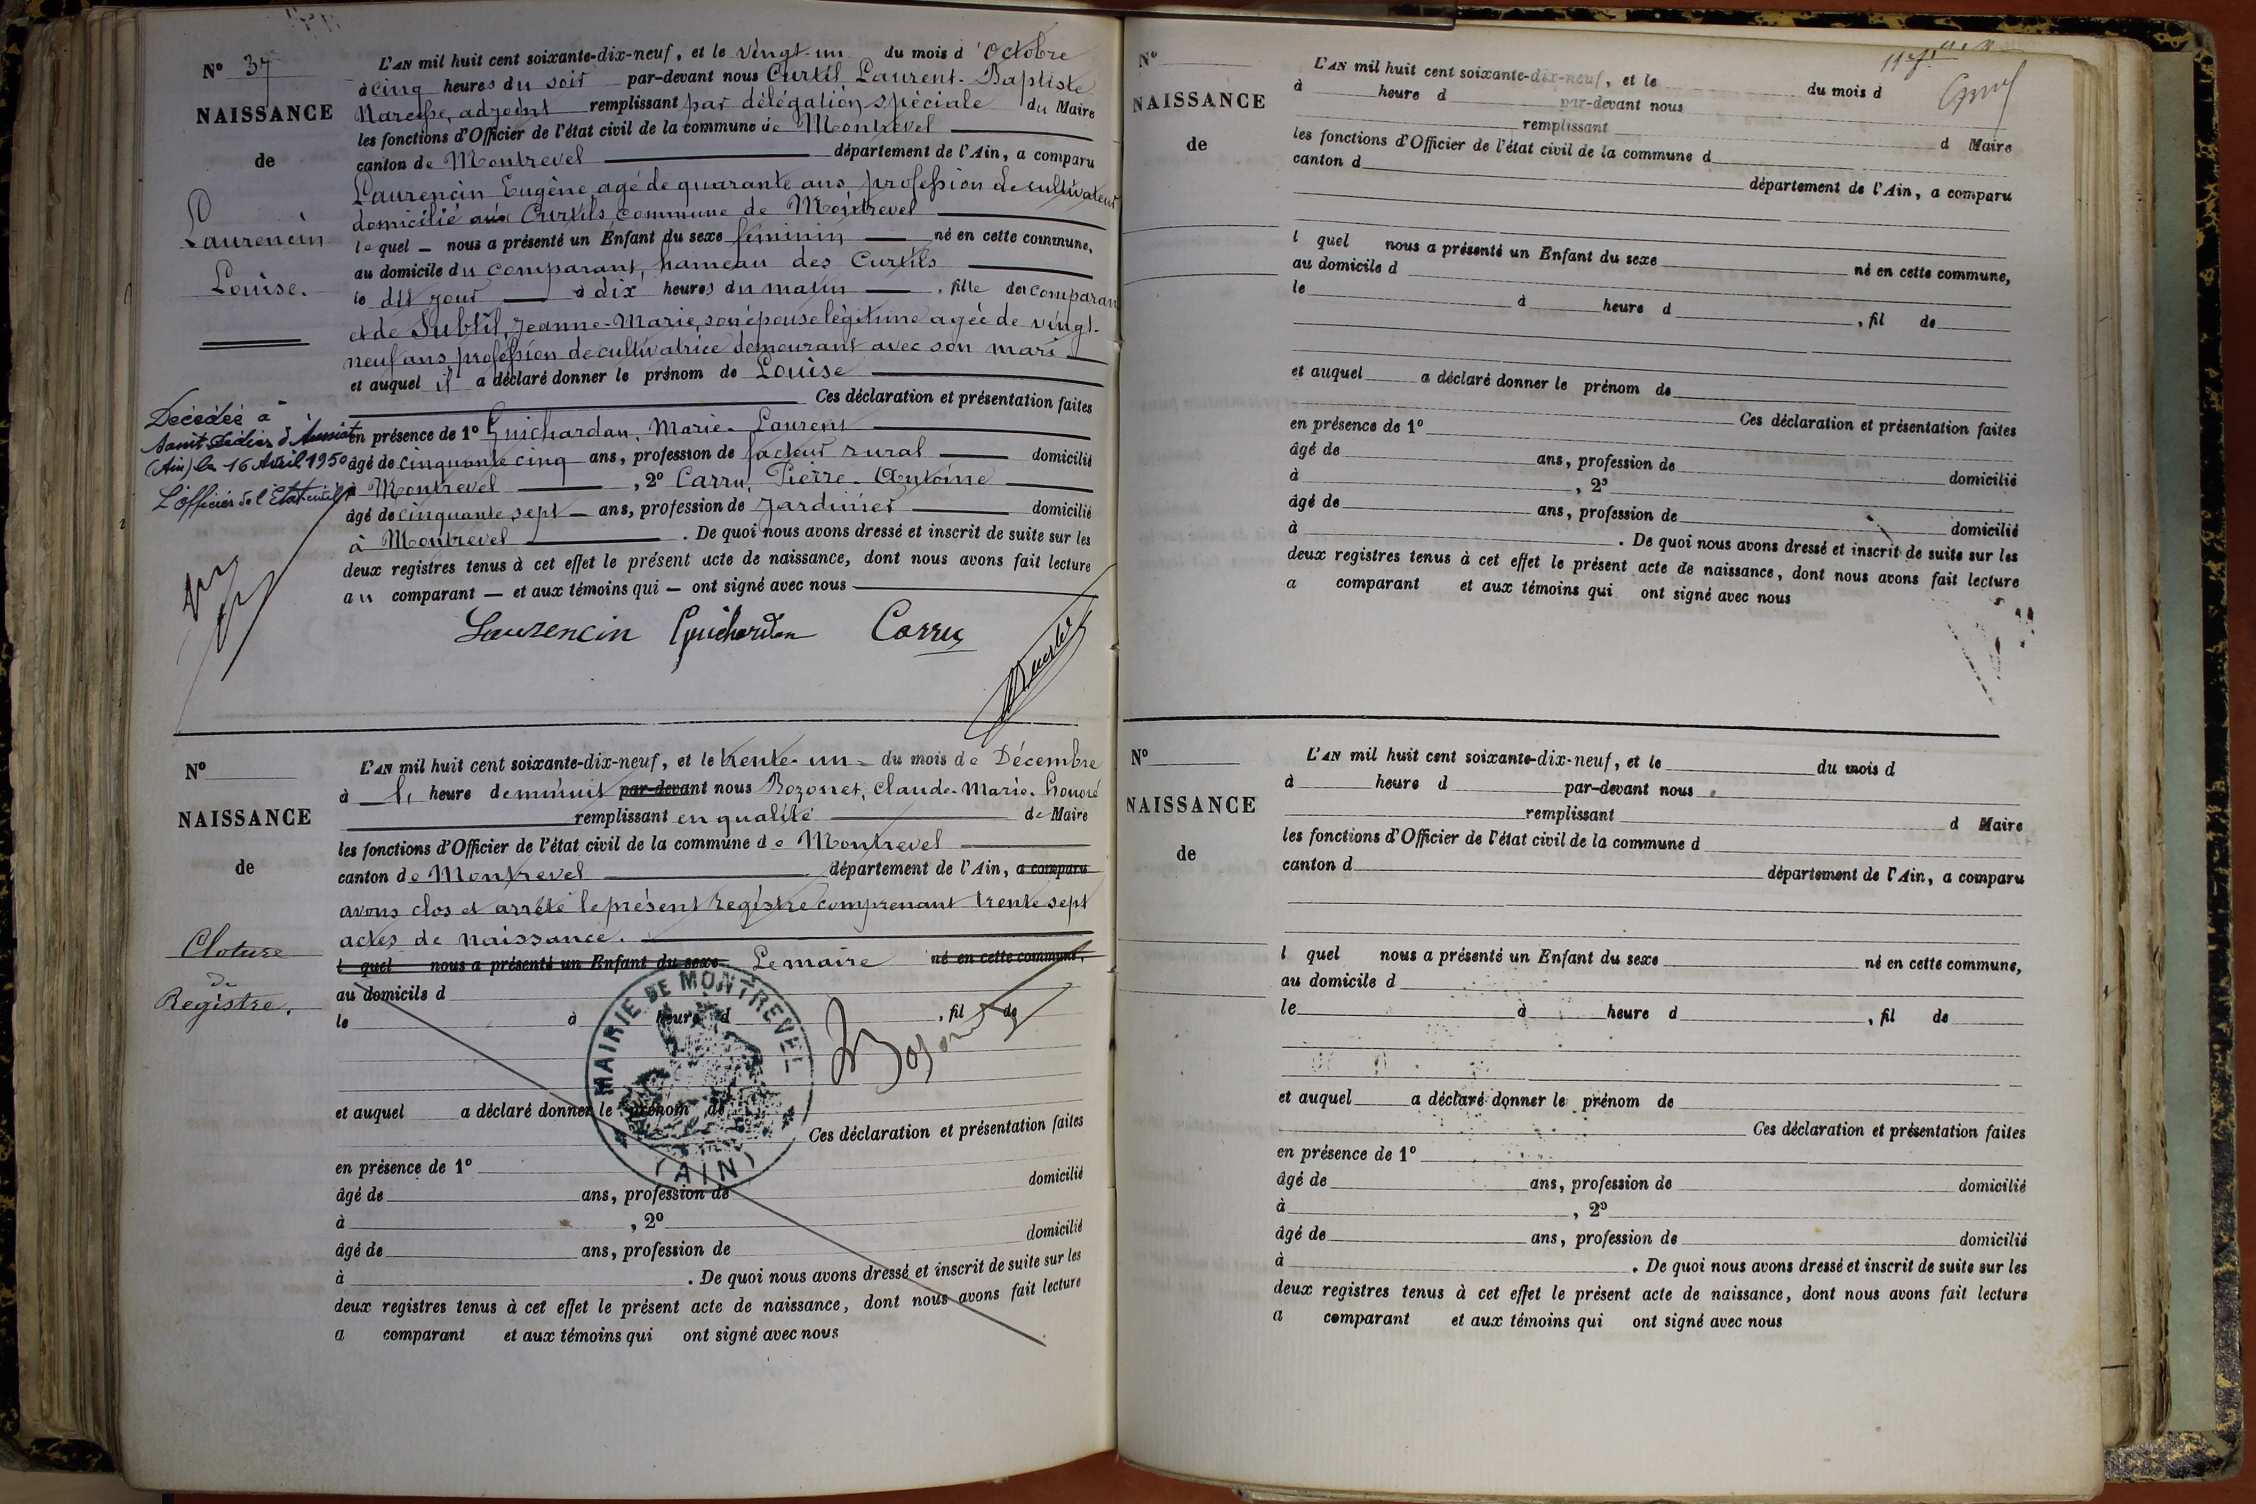 N° 37
NAISSANCE
de
Laurencin
Louise.
L'AN mil huit cent soixante-dix-neuf, et le vingt-un du mois d'Octobre
à cinq heures du soir par-devant nous Curtil Laurent-Baptiste
Narcisse, adjoint remplissant par délégation spéciale du Maire
les fonctions d'Officier de l'état civil de la commune de Montrevel
canton de Montrevel département de l'Ain, a comparu
Laurencin Eugène, agé de quarante ans, profession de cultivateur
domicilié aux Curtils, commune de Montrevel
lequel nous a présenté un Enfant du sexe féminin né en cette commune,
au domicile du comparant, hameau des Curtils
le dit jour à dix heures du matin, fille du comparant
et de Subtil, Jeanne-Marie, son épouse légitime agée de vingt-
neuf ans, profession de cultivatrice demeurant avec son mari
et auquel il a déclaré donner le prénom de Louise
Ces déclaration et présentation faites
en présence de 1° Guichardan, Marie-Laurent
âgé de cinquante cinq ans, profession de facteur rural domicilié
à Montrevel, 2° Carru, Pierre-Antoine
âgé de cinquante sept ans, profession de Jardinier domicilié
à Montrevel. De quoi nous avons dressé et inscrit de suite sur les
deux registres tenus à cet effet le présent acte de naissance, dont nous avons fait lecture
au comparant et aux témoins qui ont signé avec nous
Laurencin Guichardan Carru
Décédée à
Saint Didier d'Aussiat
(Ain) le 16 Avril 1950
L'Officier de l'Etat civil
N°
NAISSANCE
de
Cloture
du
Registre.
L'AN mil huit cent soixante-dix-neuf, et le trente-un du mois de Décembre
à l' heure de minuit par-devant nous Bozonnet, Claude-Marie-Honoré
remplissant en qualité de Maire
les fonctions d'Officier de l'état civil de la commune de Montrevel
canton de Montrevel département de l'Ain, a comparu
avons clos et arrêté le présent Registre comprenant trente sept
actes de naissance.
l quel nous a présenté un Enfant du sexe Le maire né en cette commune,
au domicile d
le à heure d , fil de
Bozonnet
MAIRIE DE MONTREVEL
(AIN)
et auquel a déclaré donner le prénom de
Ces déclaration et présentation faites
en présence de 1°
âgé de ans, profession de domicilié
à , 2°
âgé de ans, profession de domicilié
à . De quoi nous avons dressé et inscrit de suite sur les
deux registres tenus à cet effet le présent acte de naissance, dont nous avons fait lecture
a comparant et aux témoins qui ont signé avec nous
N°
NAISSANCE
de
L'AN mil huit cent soixante-dix-neuf, et le du mois d
à heure d par-devant nous
remplissant d Maire
les fonctions d'Officier de l'état civil de la commune d
canton d département de l'Ain, a comparu
l quel nous a présenté un Enfant du sexe né en cette commune,
au domicile d
le à heure d , fil de
et auquel a déclaré donner le prénom de
Ces déclaration et présentation faites
en présence de 1°
âgé de ans, profession de domicilié
à , 2°
âgé de ans, profession de domicilié
à . De quoi nous avons dressé et inscrit de suite sur les
deux registres tenus à cet effet le présent acte de naissance, dont nous avons fait lecture
a comparant et aux témoins qui ont signé avec nous
N°
NAISSANCE
de
L'AN mil huit cent soixante-dix-neuf, et le du mois d
à heure d par-devant nous
remplissant d Maire
les fonctions d'Officier de l'état civil de la commune d
canton d département de l'Ain, a comparu
l quel nous a présenté un Enfant du sexe né en cette commune,
au domicile d
le à heure d , fil de
et auquel a déclaré donner le prénom de
Ces déclaration et présentation faites
en présence de 1°
âgé de ans, profession de domicilié
à , 2°
âgé de ans, profession de domicilié
à . De quoi nous avons dressé et inscrit de suite sur les
deux registres tenus à cet effet le présent acte de naissance, dont nous avons fait lecture
a comparant et aux témoins qui ont signé avec nous